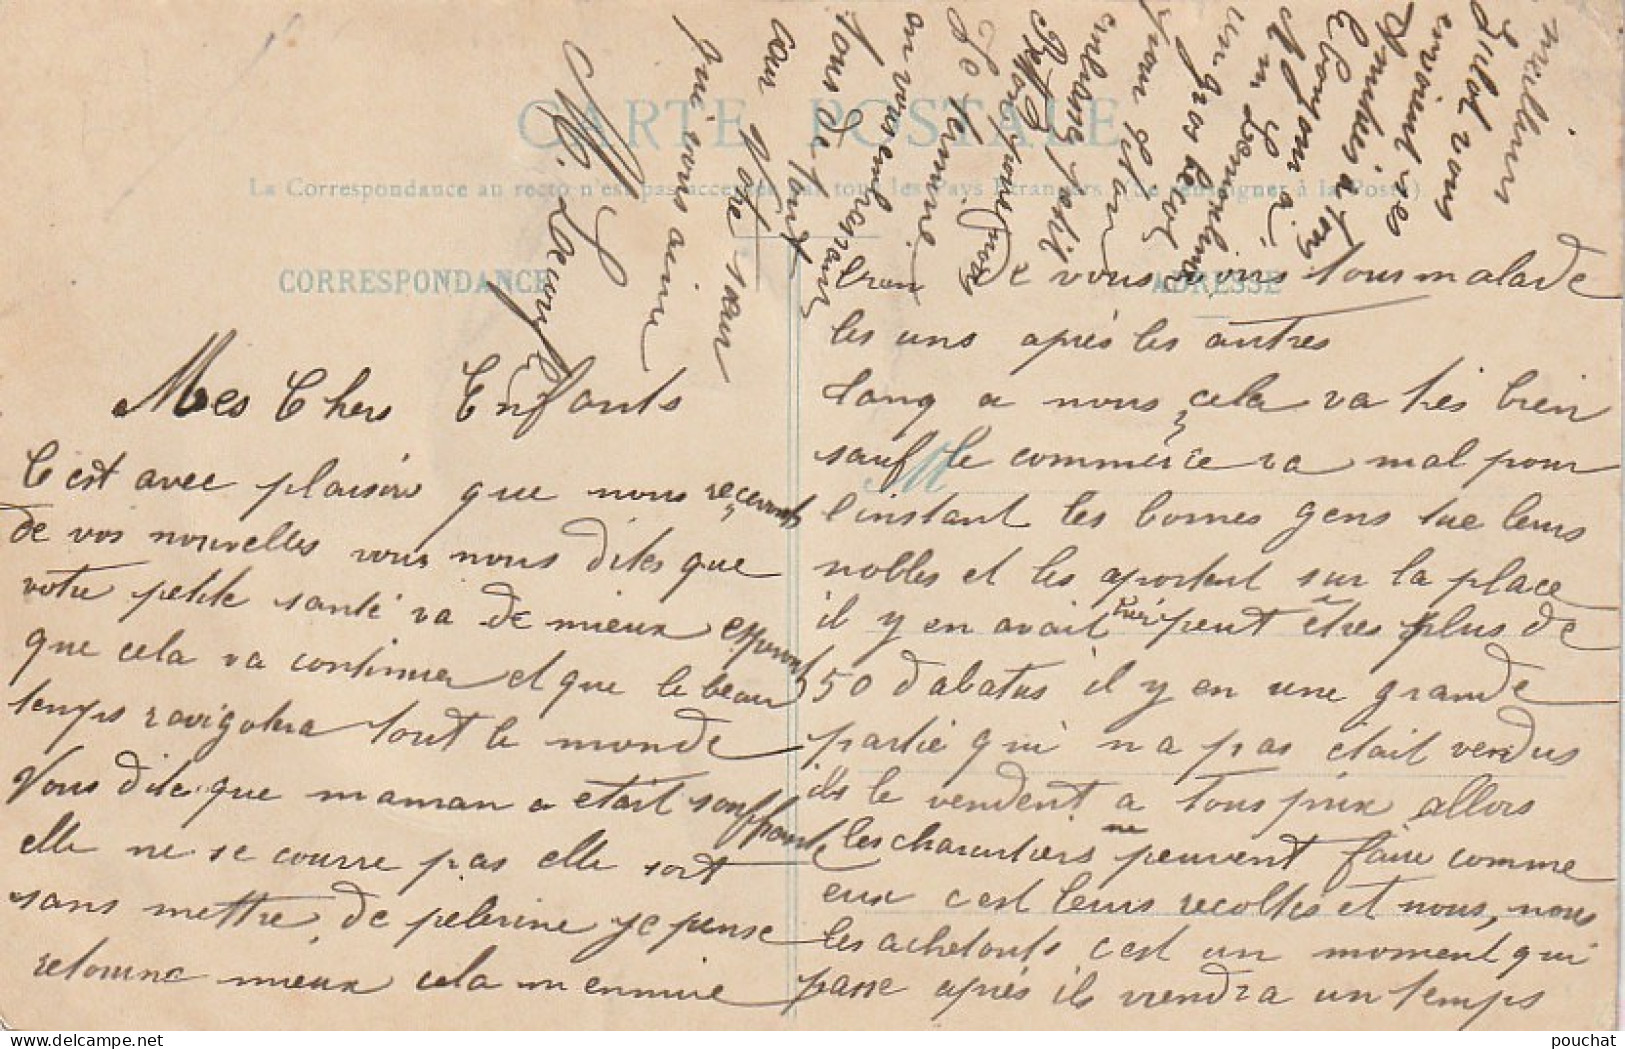 CARTE POSTALE
La Correspondance au recto n'est pas acceptée par tous les Pays Etrangers. (Se renseigner à la Poste).
CORRESPONDANCE
ADRESSE
Mes Chers Enfants
C'est avec plaisir que nous reçevont
de vos nouvelles vous nous dites que
votre petite santé va de mieux esperont
que cela va continuer et que le beau
temps ravigotera tout le monde
Vous dite que maman a était souffrante
elle ne se courre pas elle sort
sans mettre de pelerine je pense
retourne mieux cela m ennuie
de vous voirs tous malade
les uns après les autres
tanq a nous cela va très bien
sauf le commerce va mal pour
l'instant les bonnes gens tue leurs
nobles et les aportent sur la place
il y en avait peut êtres plus de
50 d'abatus il y en une grande
partie qui n a pas était vendus
ils le vendent a tous prix allors
les charcutiers ne peuvent faire comme
eux c est leurs recoltes et nous, nous
les achetonts c est un moment qui
passe après ils viendra un temps
meilleurs
vous
envoient ses
Amities a ton
un gros
mon
petit
Je termine
on vous embrassant
Tous de
Votre sœur
qui vous aime
M